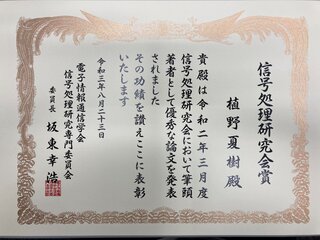 信号処理研究会賞
植野夏樹殿
貴殿は令和二年三月度
信号処理研究会において筆頭
著者として優秀な論文を発表
されました
その功績を讃えここに表彰
いたします
令和三年八月二十三日
電子情報通信学会
信号処理研究専門委員会
委員長 坂東幸浩